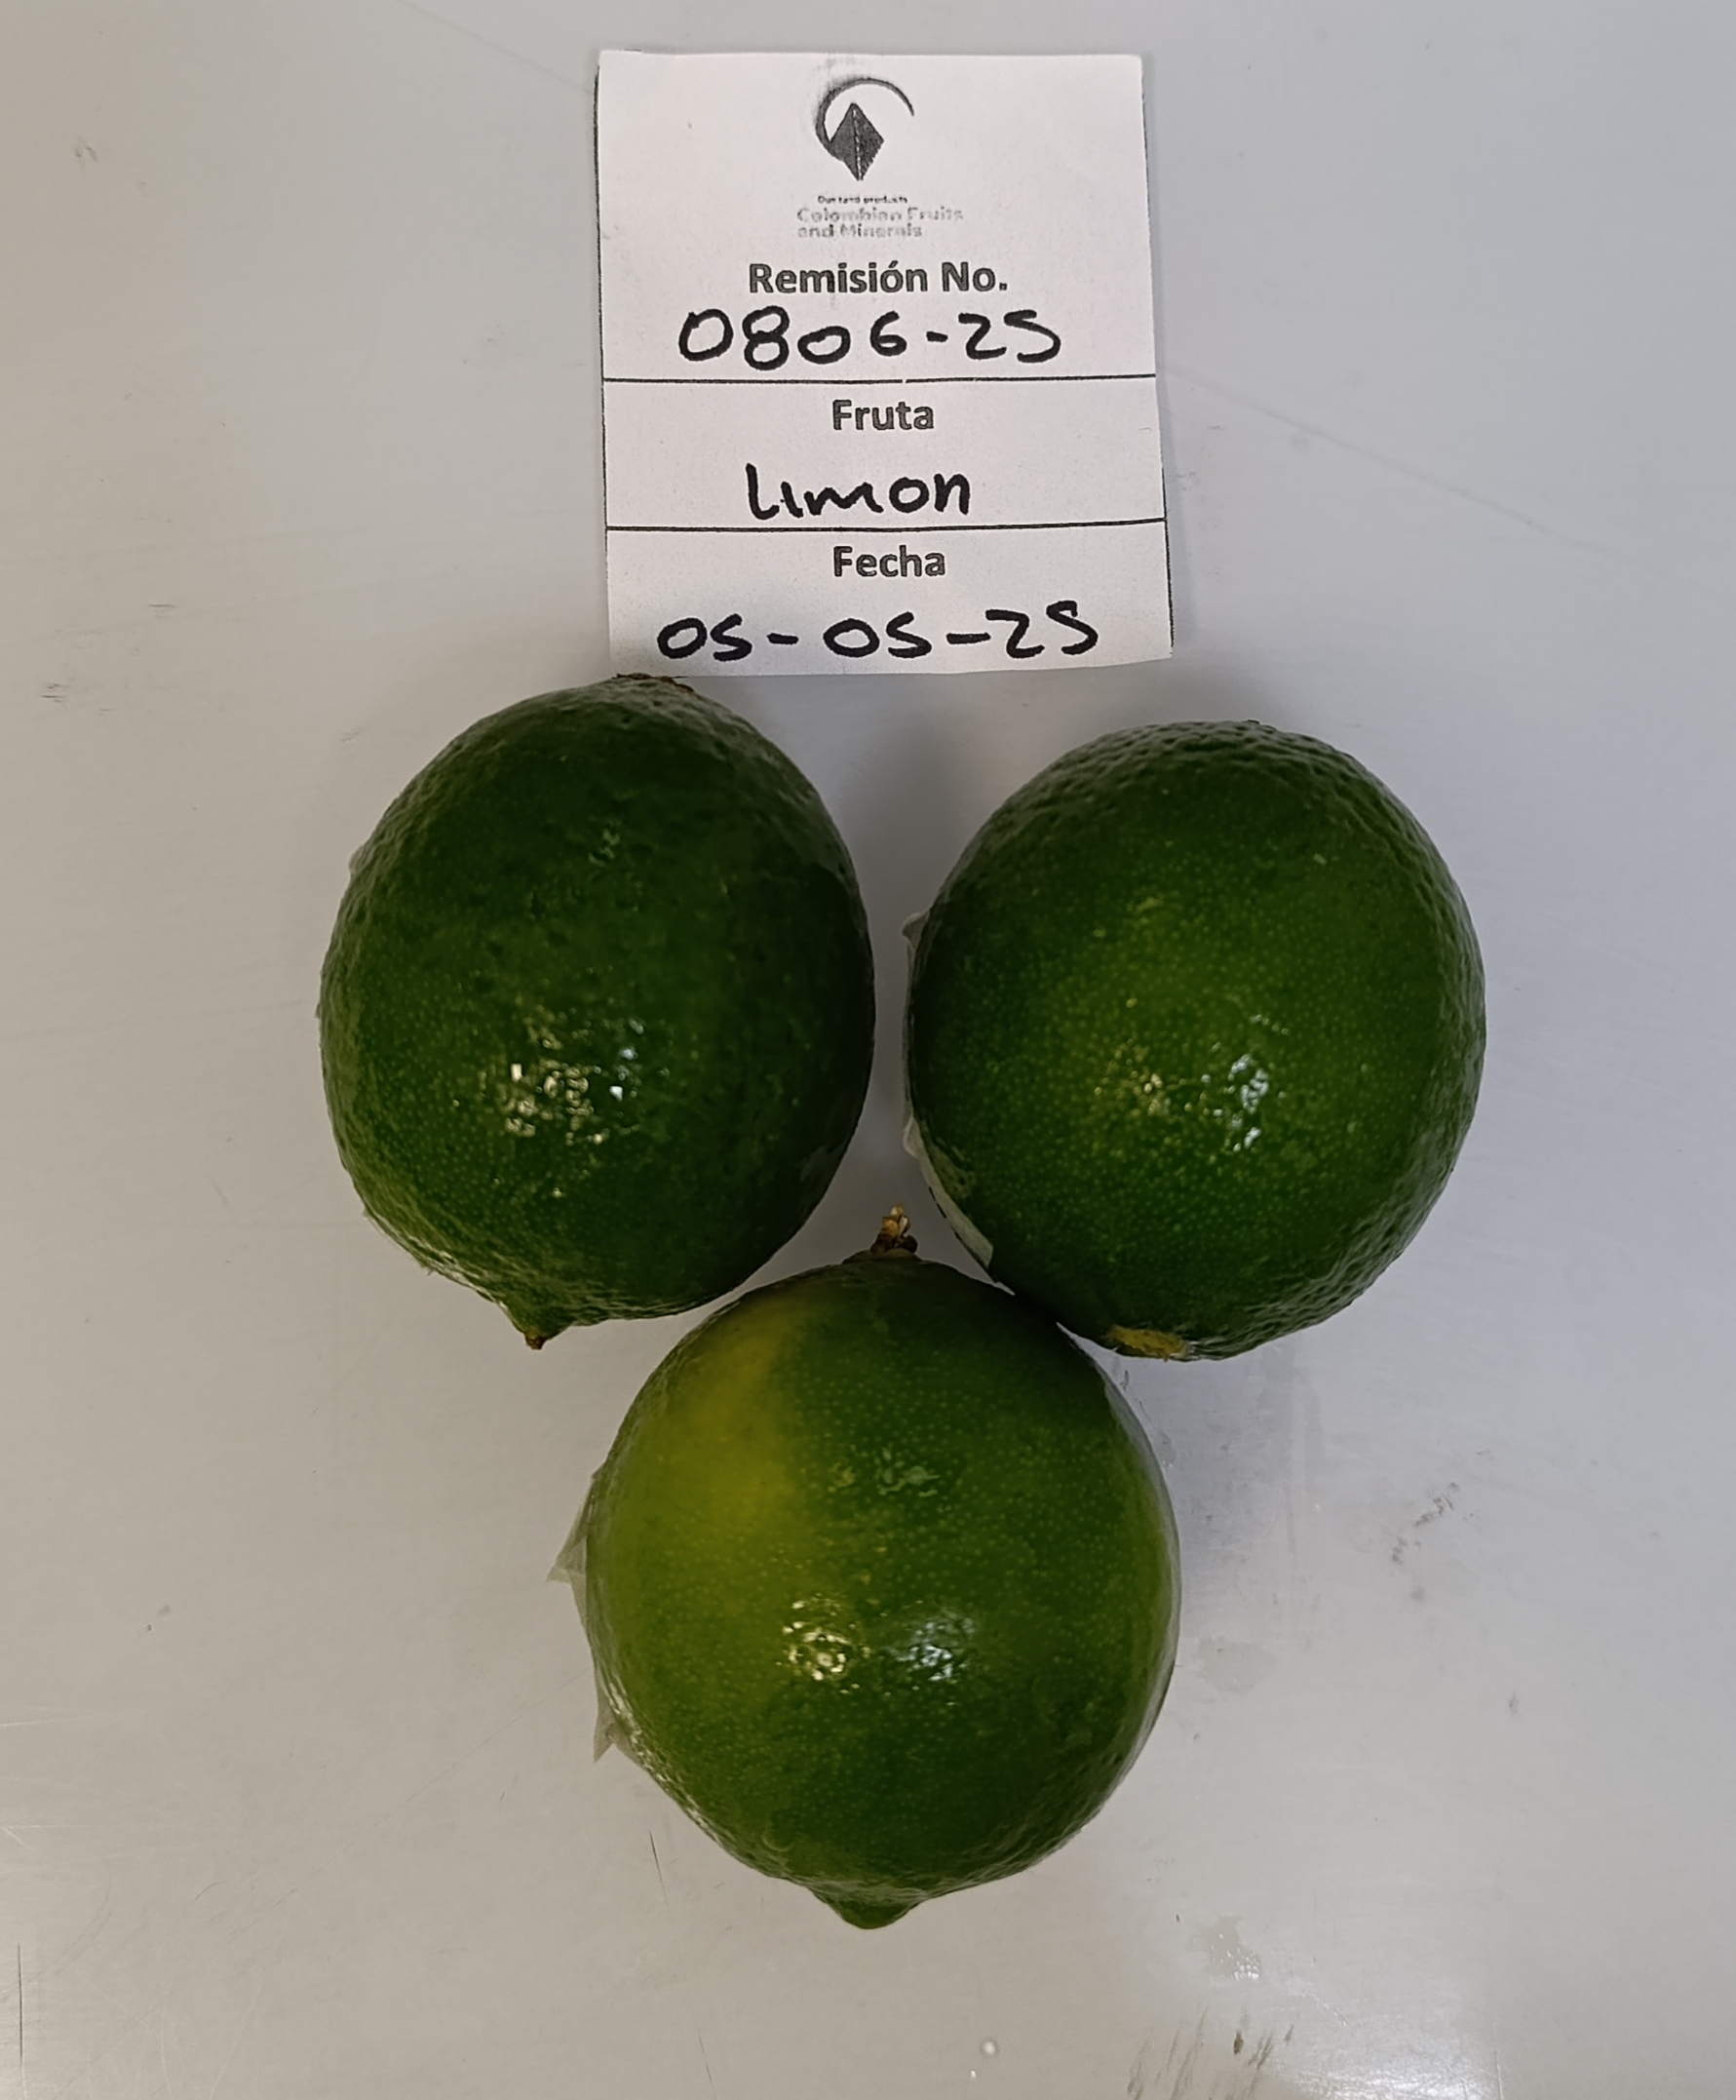 Our land products
Colombian Fruits
and Minerals
Remisión No.
0806-25
Fruta
Limon
Fecha
05-05-25